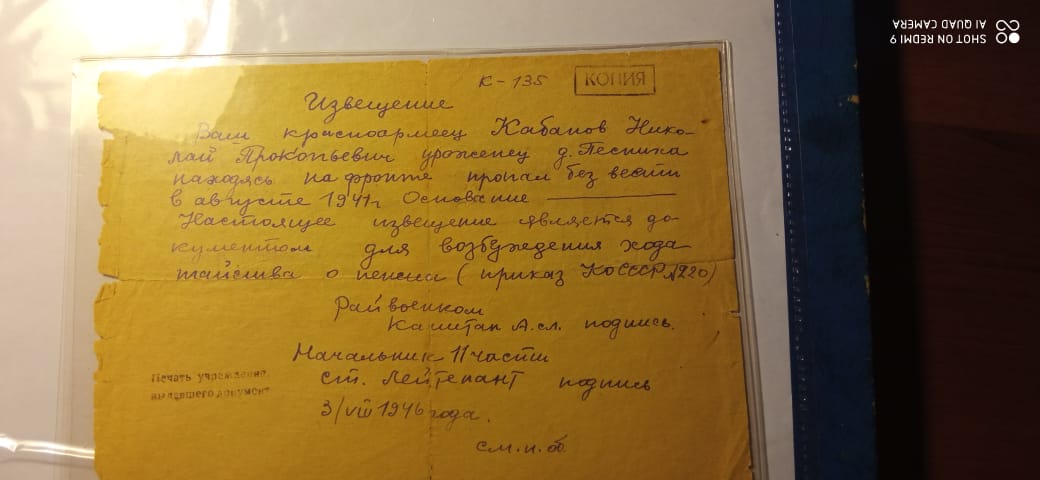 К - 135 КОПИЯ
Извещение
Ваш красноармеец Кабанов Нико-
лай Прокопьевич уроженец д. Песчика
находясь на фронте пропал без вести
в августе 1941г Основание
Настоящее извещение является до-
кументом для возбуждения хода-
тайства о пенсии (приказ НКО СССР №220)
Райвоенком
Капитан А.сл. подпись.
Начальник 11 части
ст. лейтенант подпись
Печать учреждения,
выдавшего документ
3/VIII 1946 года.
см. н. об.
SHOT ON REDMI 9
AI QUAD CAMERA